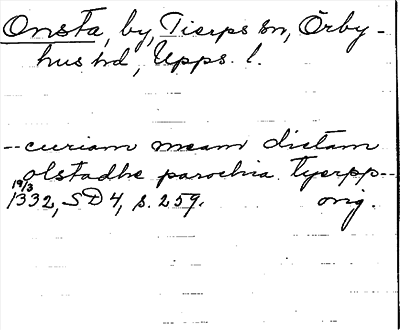 Onsta, by, Tierps sn, Örby-
hus hd, Upps. l.
-- curiam meam dictam
olstadhe parochia tyerpp --
19/3
1332, SD 4, s. 259. orig.